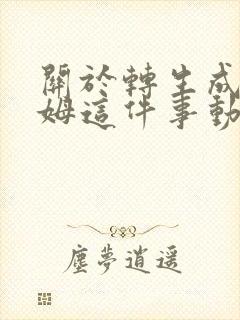 關於轉生成
姆這件事動
塵夢逍遥